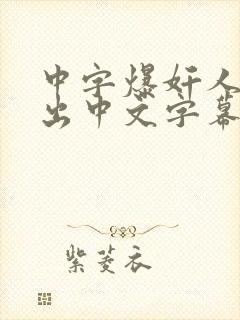 中字爆奸人
出中文字幕
紫菱衣